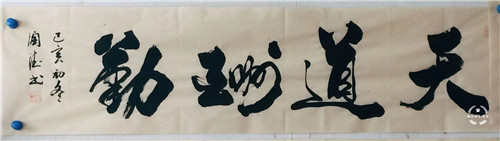 天道酬勤
己亥初冬
陶德书